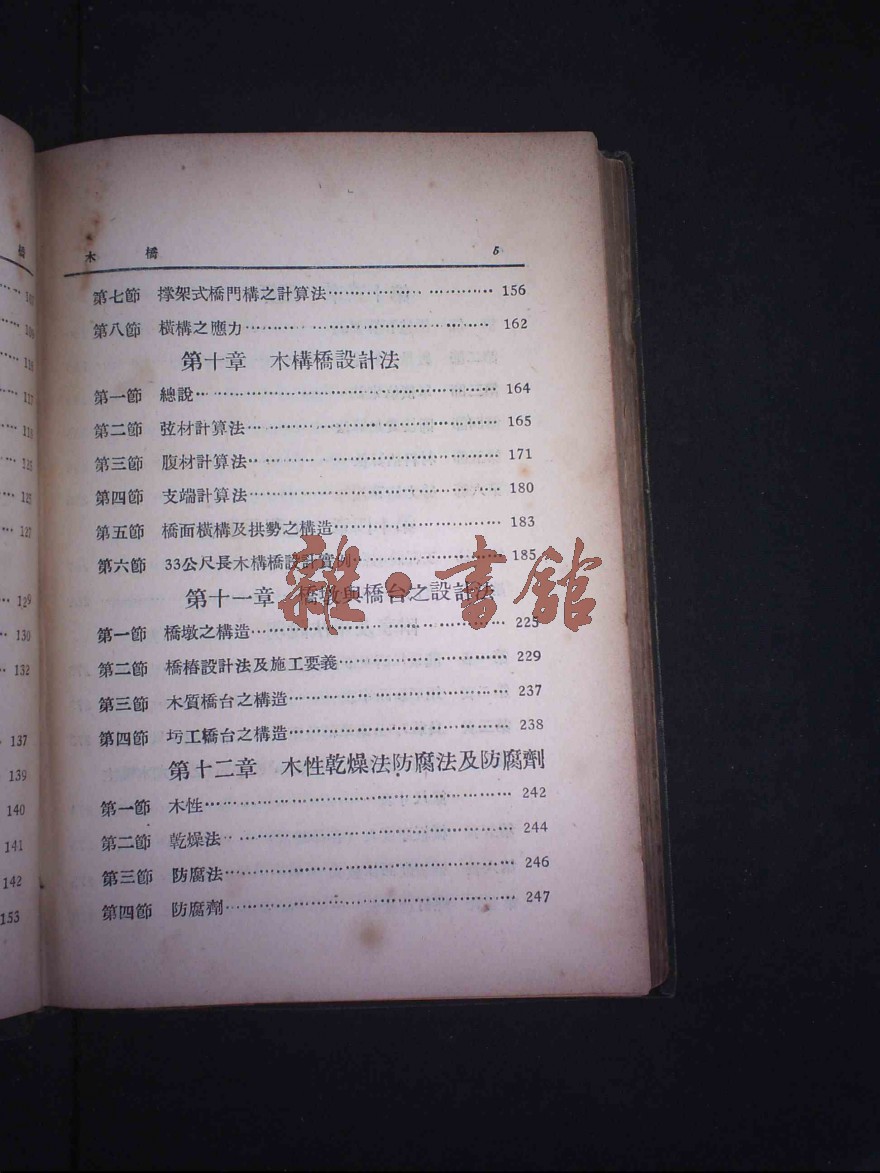 木 橋 5
第七節 撑架式橋門構之計算法 156
第八節 橫構之應力 162
第十章 木構橋設計法
第一節 總說 164
第二節 弦材計算法 165
第三節 腹材計算法 171
第四節 支端計算法 180
第五節 橋面橫構及拱勢之構造 183
第六節 33公尺長木構橋設計實例 185
第十一章 橋墩與橋台之設計法
第一節 橋墩之構造 225
第二節 橋椿設計法及施工要義 229
第三節 木質橋台之構造 237
第四節 圬工橋台之構造 238
第十二章 木性乾燥法防腐法及防腐劑
第一節 木性 242
第二節 乾燥法 244
第三節 防腐法 246
第四節 防腐劑 247
雜·書舘
橋
117
125
127
129
130
132
137
139
140
141
142
153